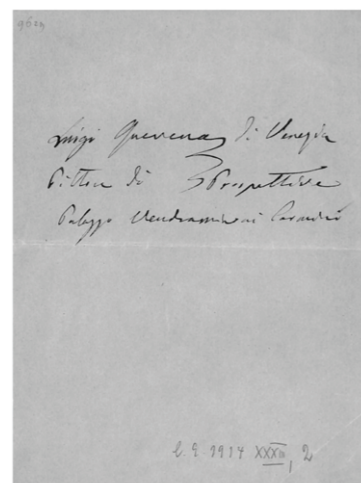 Luigi Querena di Venezia
Pittore di Prospettive
Palazzo Vendramin ai Carmini
1917 XXXIII, 2